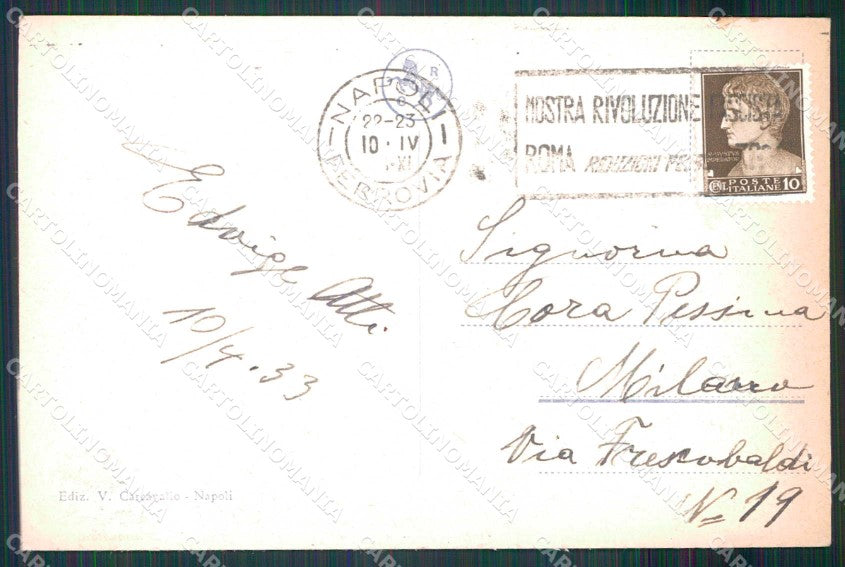 NAPOLI
22-23
10·IV
XI
FERROVIA
V R
MOSTRA RIVOLUZIONE FASCISTA
ROMA RIDUZIONI
POSTE
CENT. ITALIANE 10
Edvige Atti.
10/4.33
Signorina
Cora Pessina
Milano
Via Frescobaldi
N= 19
Ediz. V. Carcavallo - Napoli
CARTOLINOMANIA